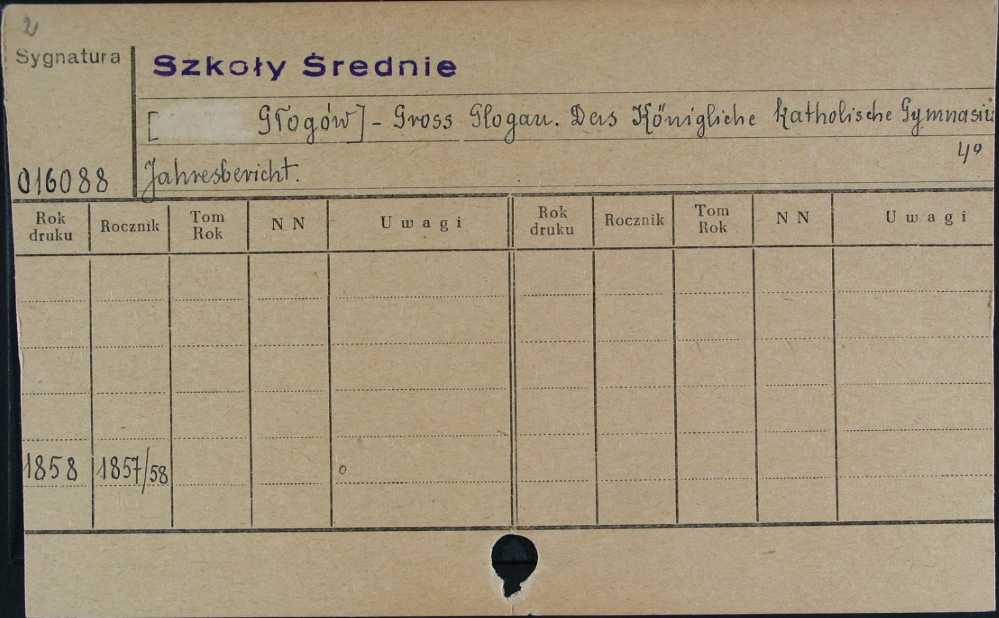 2
Sygnatura
Szkoły Średnie
[ Głogów] - Gross Glogau. Das Königliche Katholische Gymnasiu
4°
016088
Jahresbericht.
Rok druku Rocznik Tom Rok N N Uwagi Rok druku Rocznik Tom Rok N N Uwagi
1858 1857/58 o